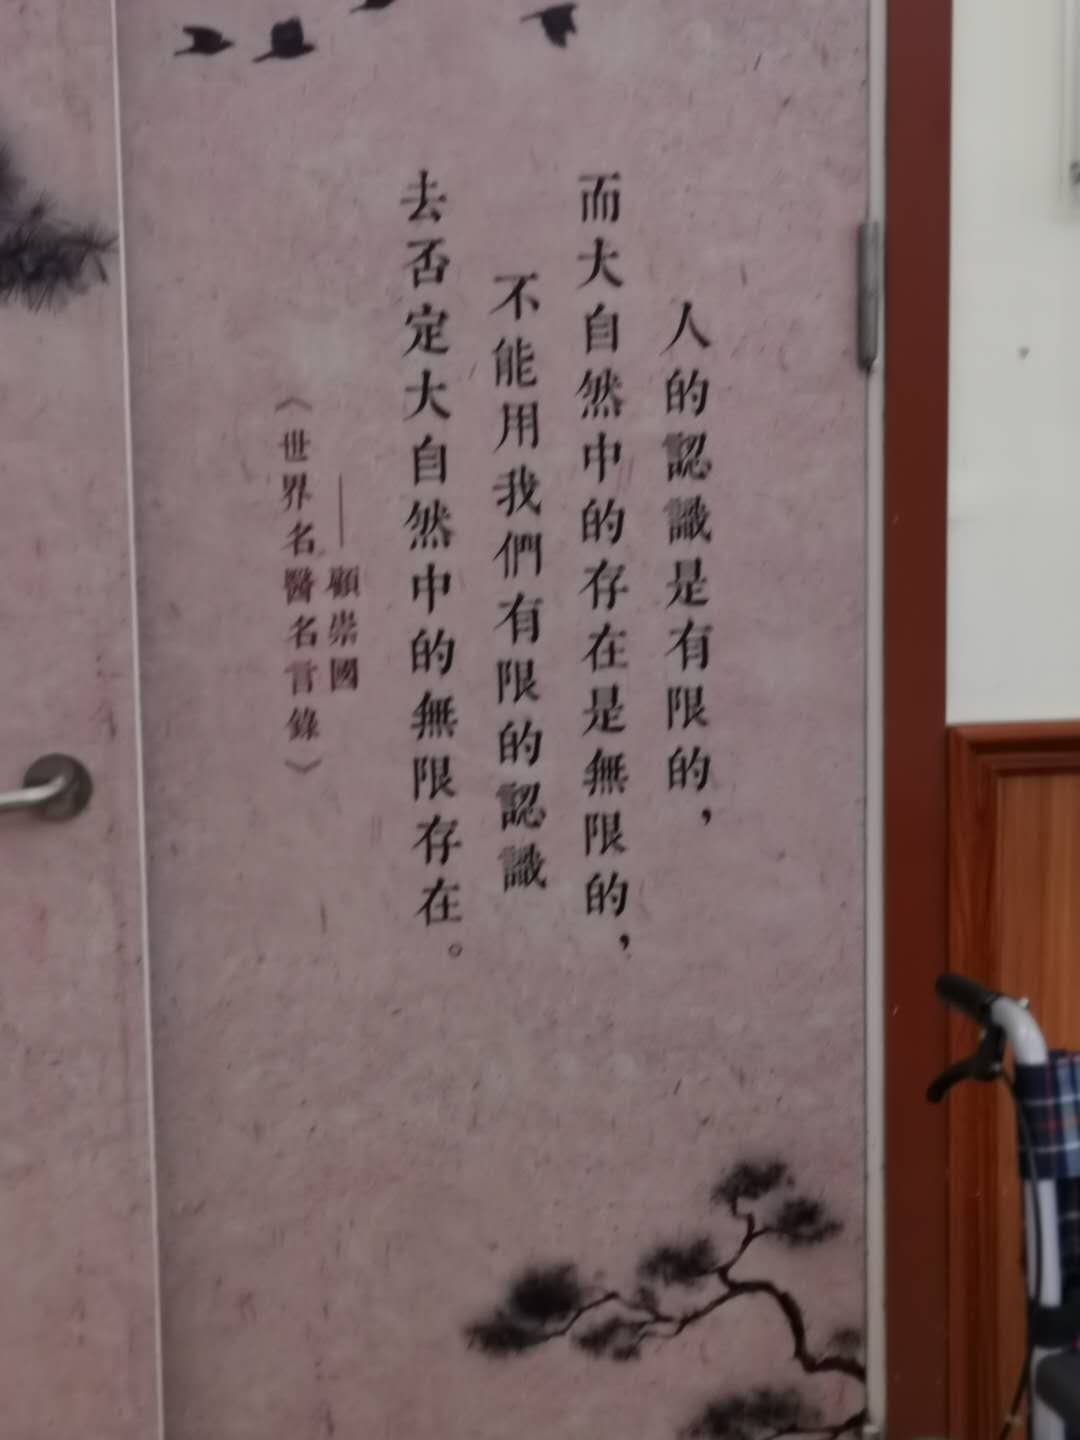 人的認識是有限的，
而大自然中的存在是無限的，
不能用我們有限的認識
去否定大自然中的無限存在。
——顧崇國
《世界名醫名言錄》